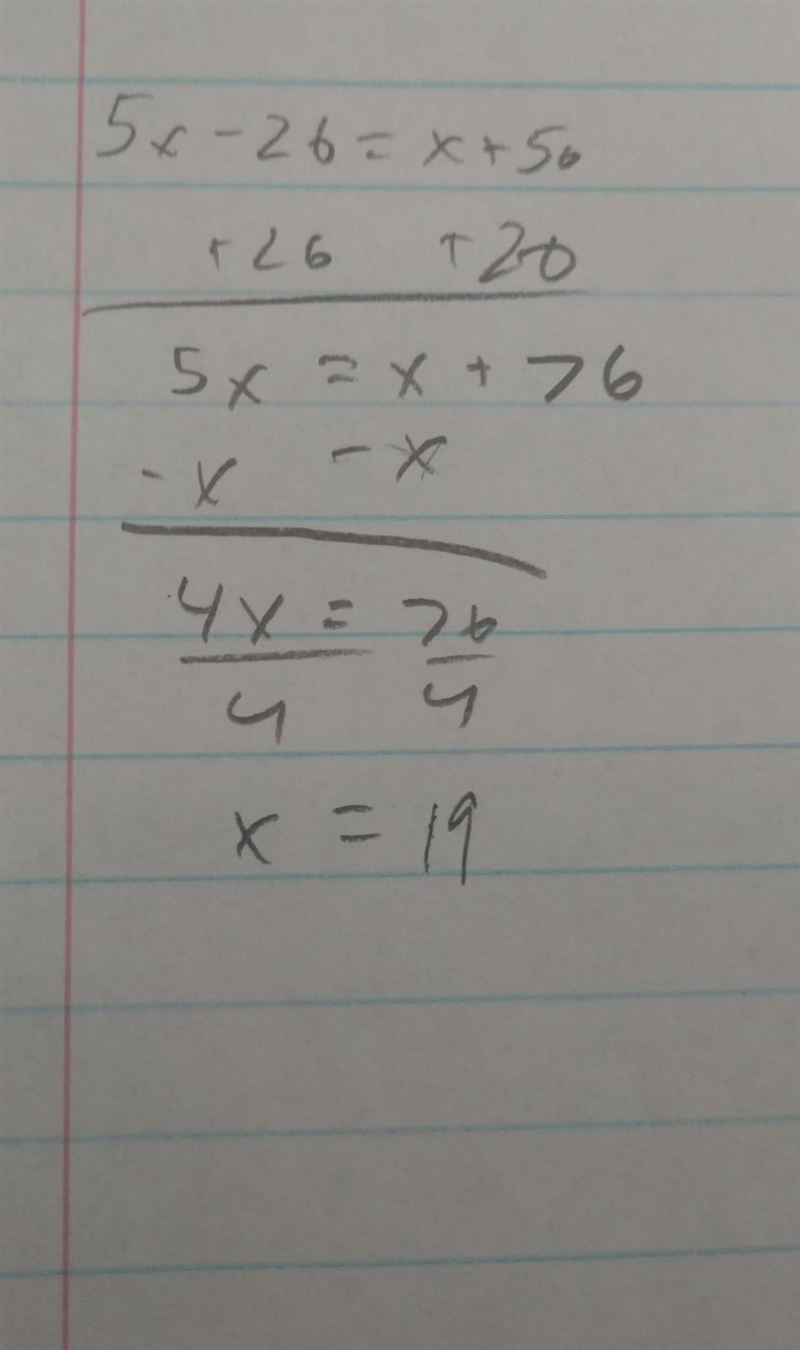 5x - 26 = x + 50
+26 +20
5x = x + 76
-x -x
4x = 76
4 4
x = 19